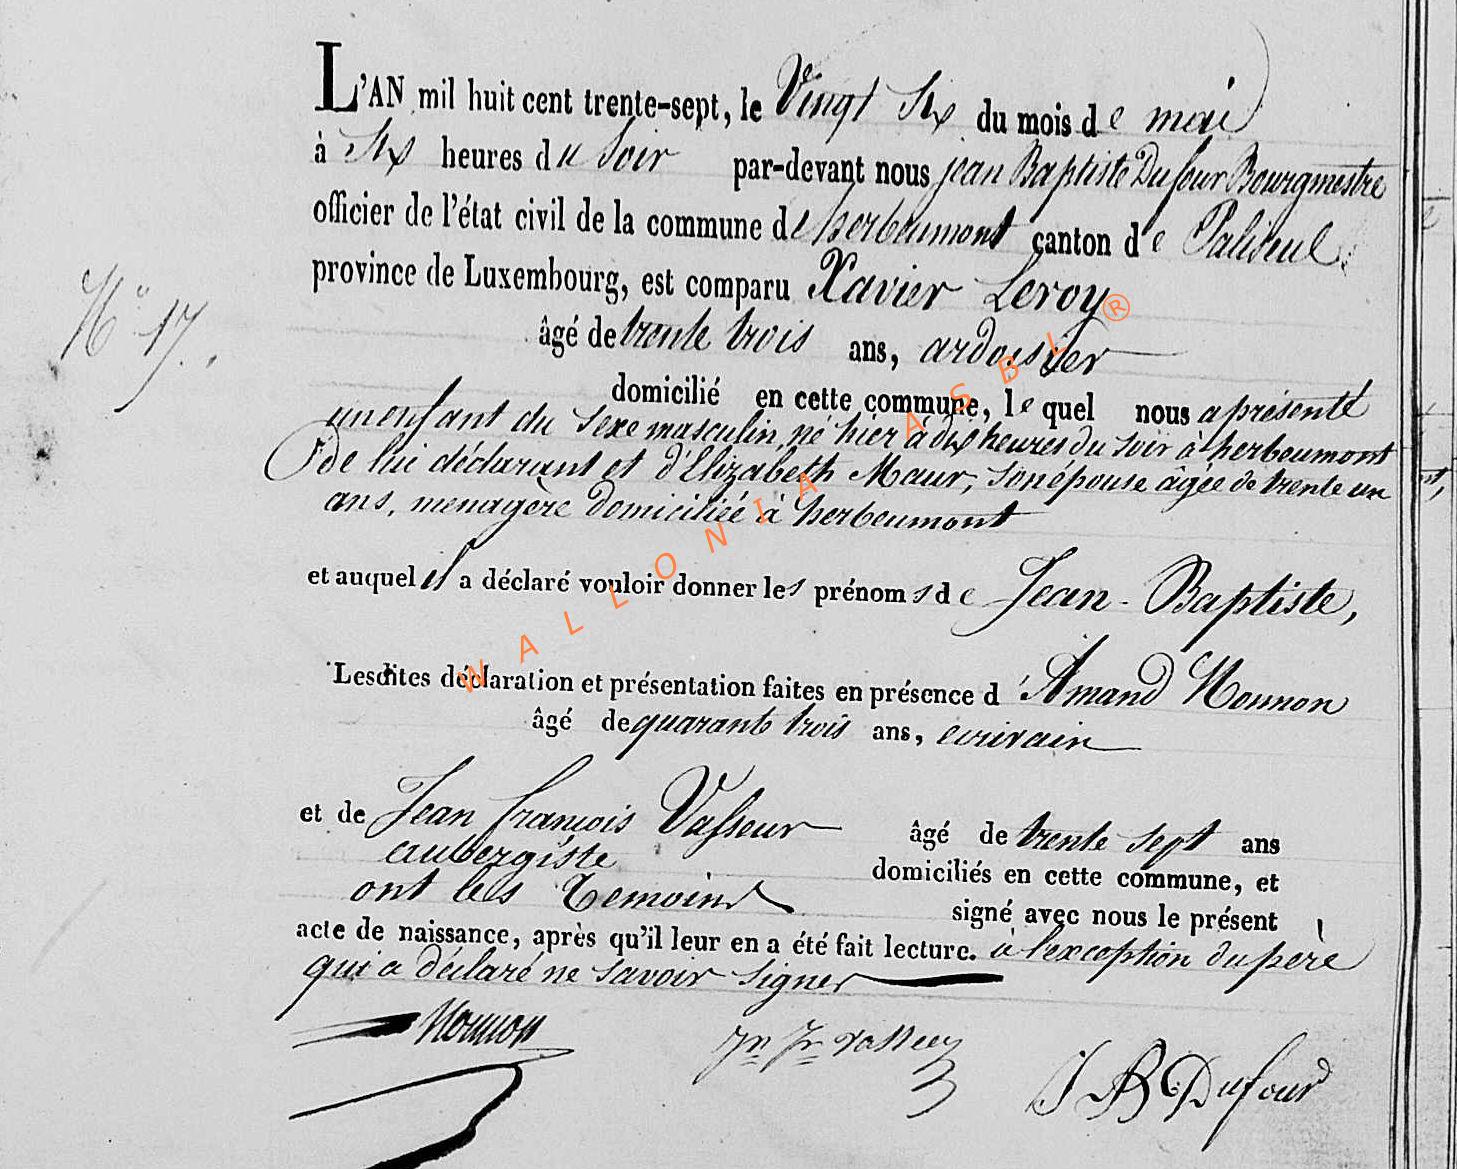 L'AN mil huit cent trente-sept, le Vingt Six du mois de mai
à Six heures du Soir par-devant nous jean Baptiste Dufour Bourgmestre
officier de l'état civil de la commune de herbeumont canton de Paliseul
province de Luxembourg, est comparu Xavier Leroy
N° 17.
âgé de trente trois ans, ardoisier
domicilié en cette commune, lequel nous a présenté
un enfant du Sexe masculin, né hier à dix heures du soir à herbeumont
de lui déclarant et d'Elizabeth Maur, son épouse âgée de trente un
ans, menagère domiciliée à herbeumont
et auquel il a déclaré vouloir donner les prénoms de Jean-Baptiste,
Lesdites déclaration et présentation faites en présence d'Amand Nounon
âgé de quarante trois ans, ecrivain
et de Jean françois Vasseur âgé de trente sept ans
aubergiste domiciliés en cette commune, et
ont les Temoins signé avec nous le présent
acte de naissance, après qu'il leur en a été fait lecture. à l'exception du père
qui a déclaré ne savoir signer
Nounon Jn Fr Vasseur
J B Dufour
WALLONIA ASBL ®